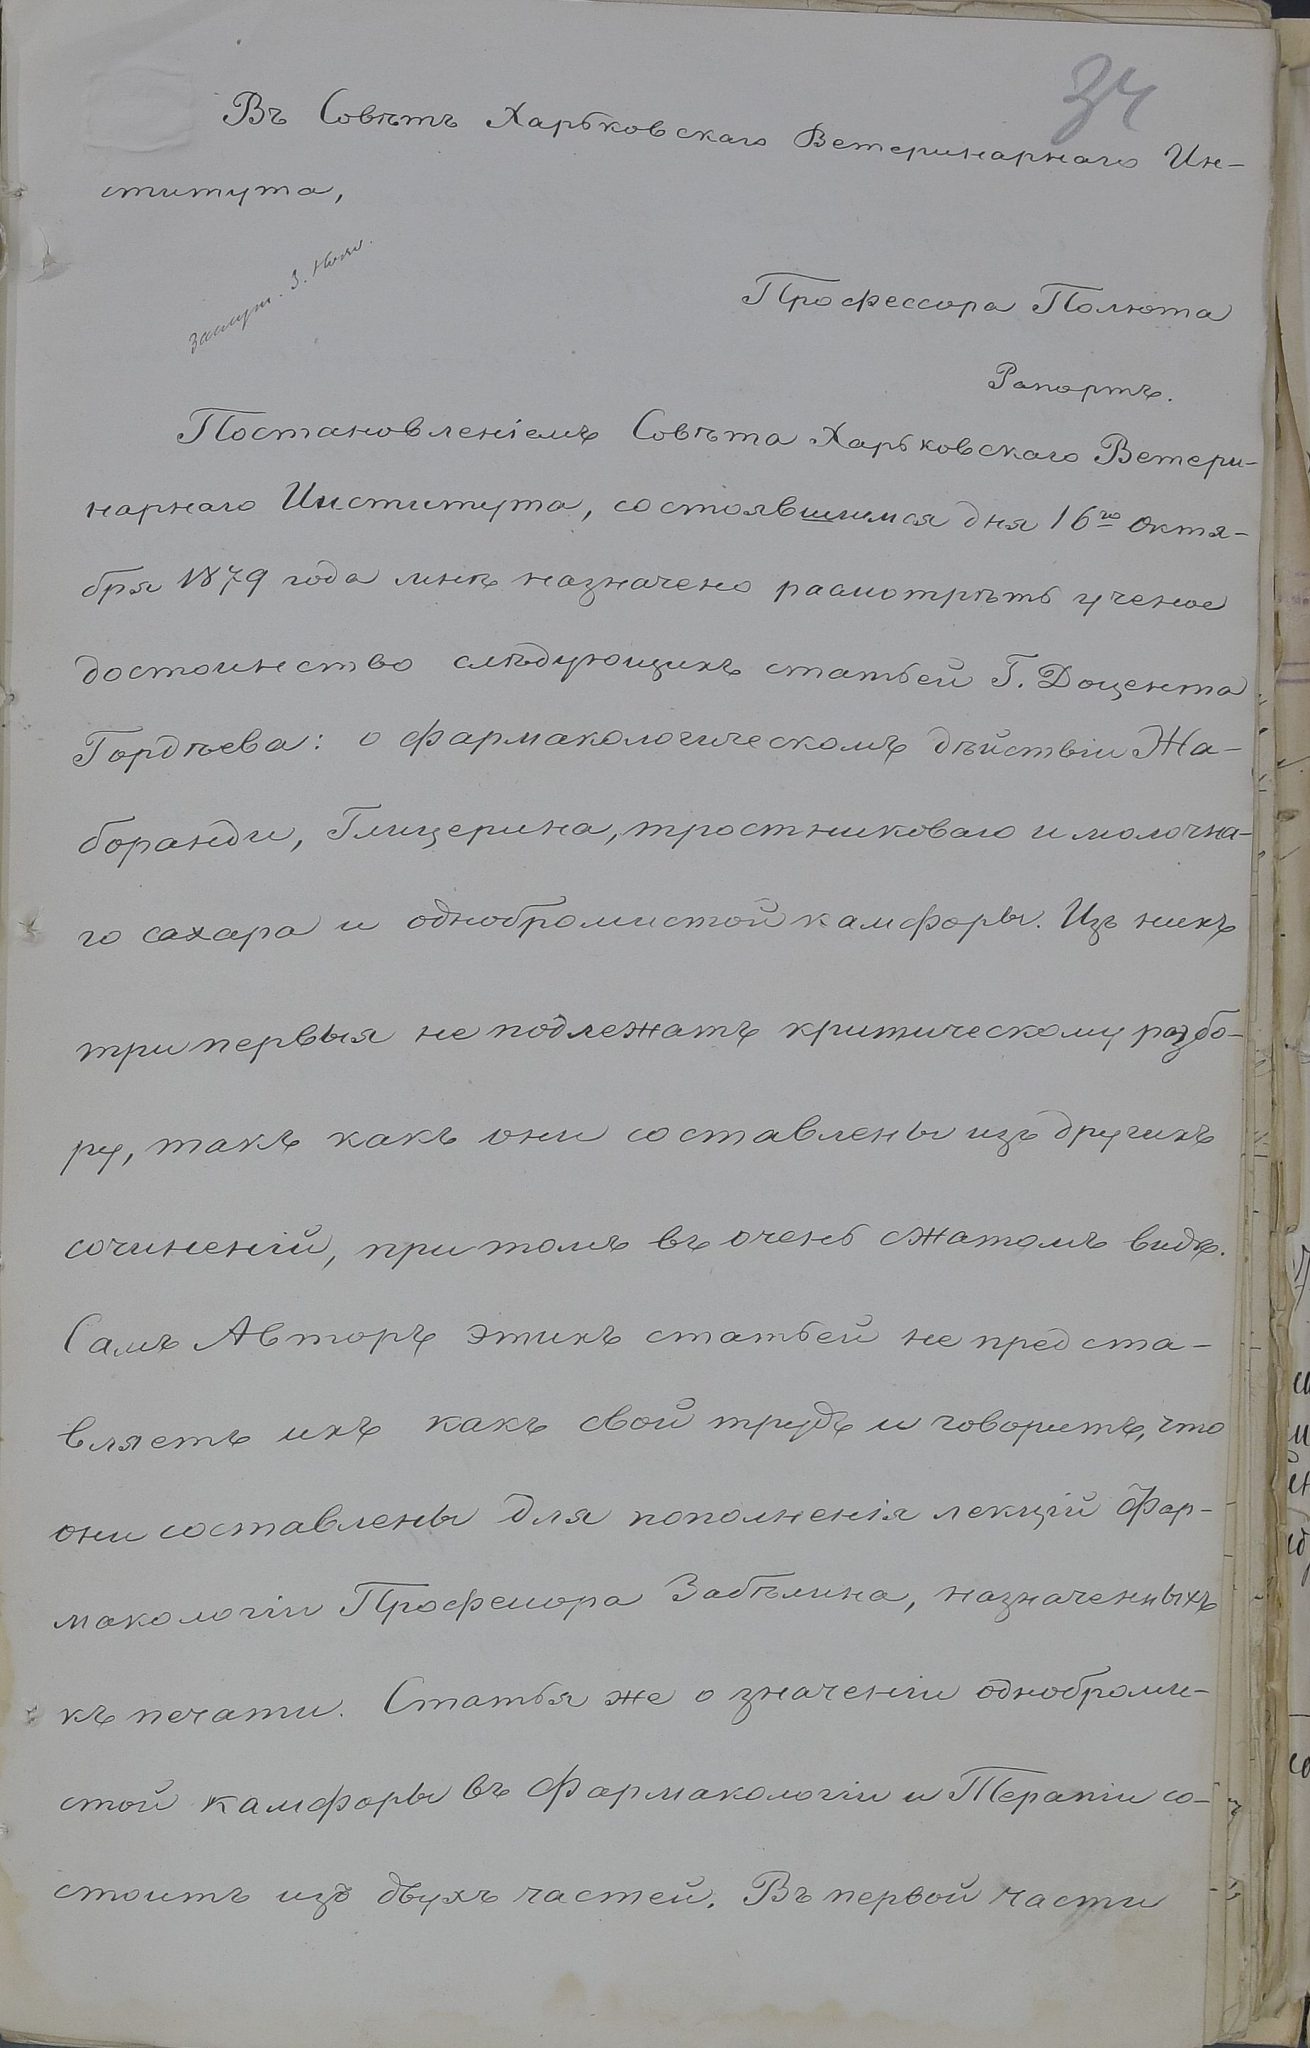 34
Въ Совѣтъ Харьковскаго Ветеринарнаго Ин-
ститута,
Профессора Полюта
Рапортъ.
Постановленіемъ Совѣта Харьковскаго Ветери-
нарнаго Института, состоявшимся дня 16го Октя-
бря 1879 года мнѣ назначено расмотрѣть ученое
достоинство слѣдующихъ статьей Г. Доцента
Гордѣева: о фармакологическомъ дѣйствіи Жа-
боранди, Глицерина, тростниковаго и молочна-
го сахара и однобромистой камфоры. Изъ нихъ
три первыя не подлежатъ критическому разбо-
ру, такъ какъ они составлены изъ другихъ
сочиненій, при томъ въ очень сжатомъ видѣ.
Самъ Авторъ этихъ статьей не предста-
вляетъ ихъ какъ свой трудъ и говоритъ, что
они составлены для пополненія лекцій Фар-
макологіи Професора Забѣлина, назначенныхъ
къ печати. Статья же о значеніи однороми-
стой камфоры въ Фармакологіи и Терапіи со-
стоитъ изъ двухъ частей. Въ первой части